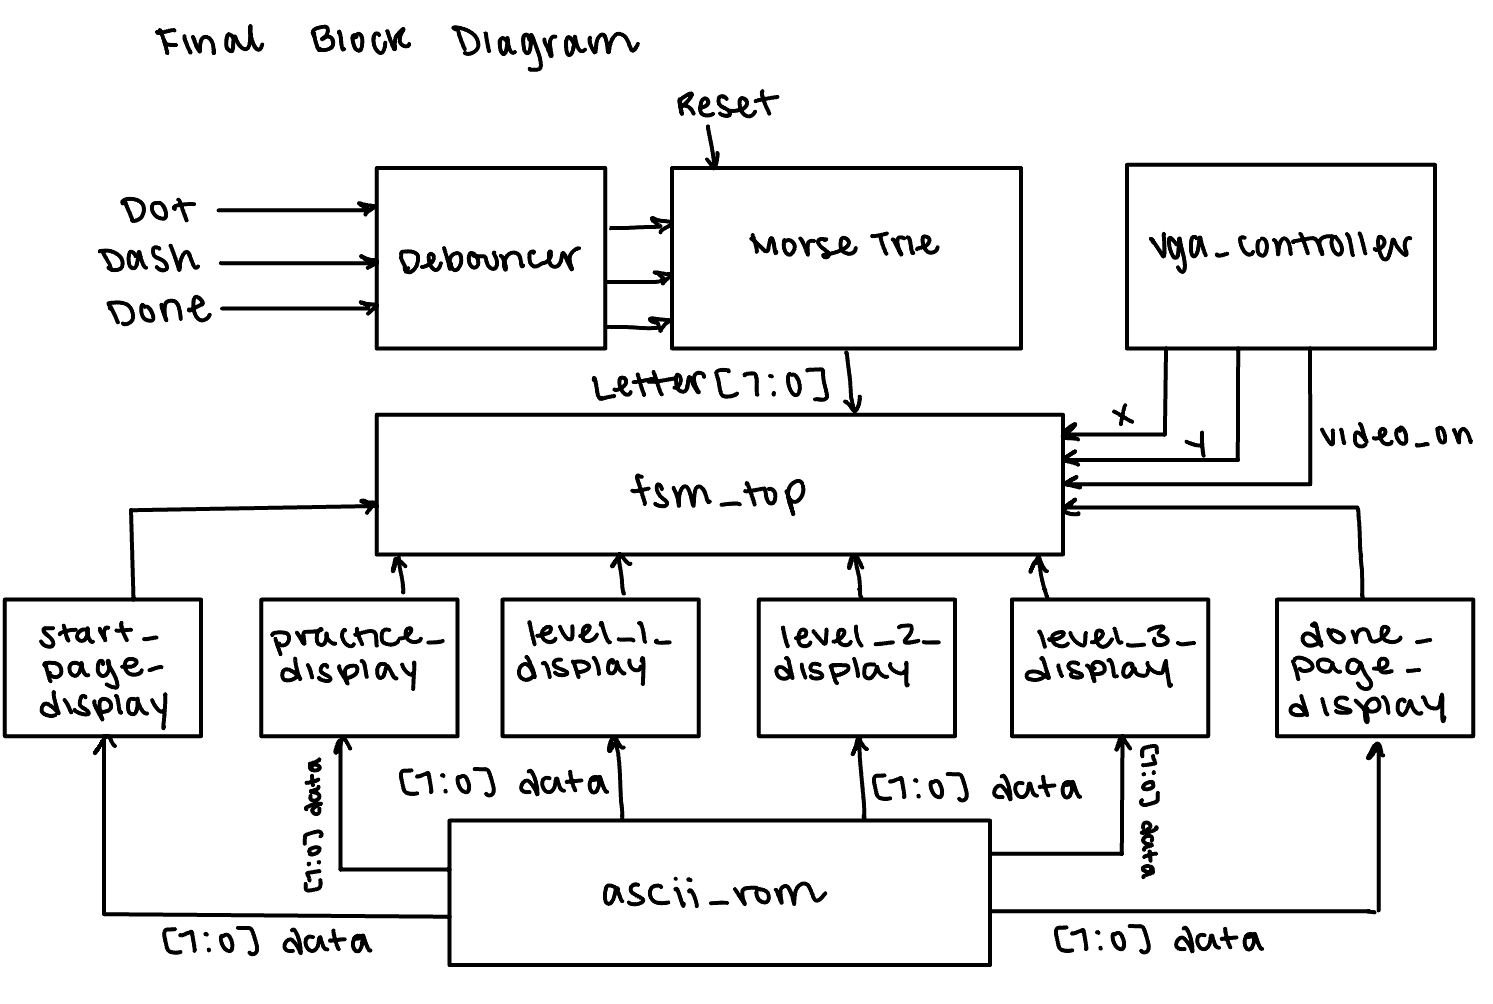 Final Block Diagram
Reset
Dot
Dash
Done
Debouncer
Morse Trie
vga_controller
Letter [7:0]
X
Y
video_on
fsm_top
start_
page_
display
practice_
display
level_1_
display
level_2_
display
level_3_
display
done_
page_
display
[7:0] data
[7:0] data
[7:0] data
[7:0] data
ascii_rom
[7:0] data
[7:0] data